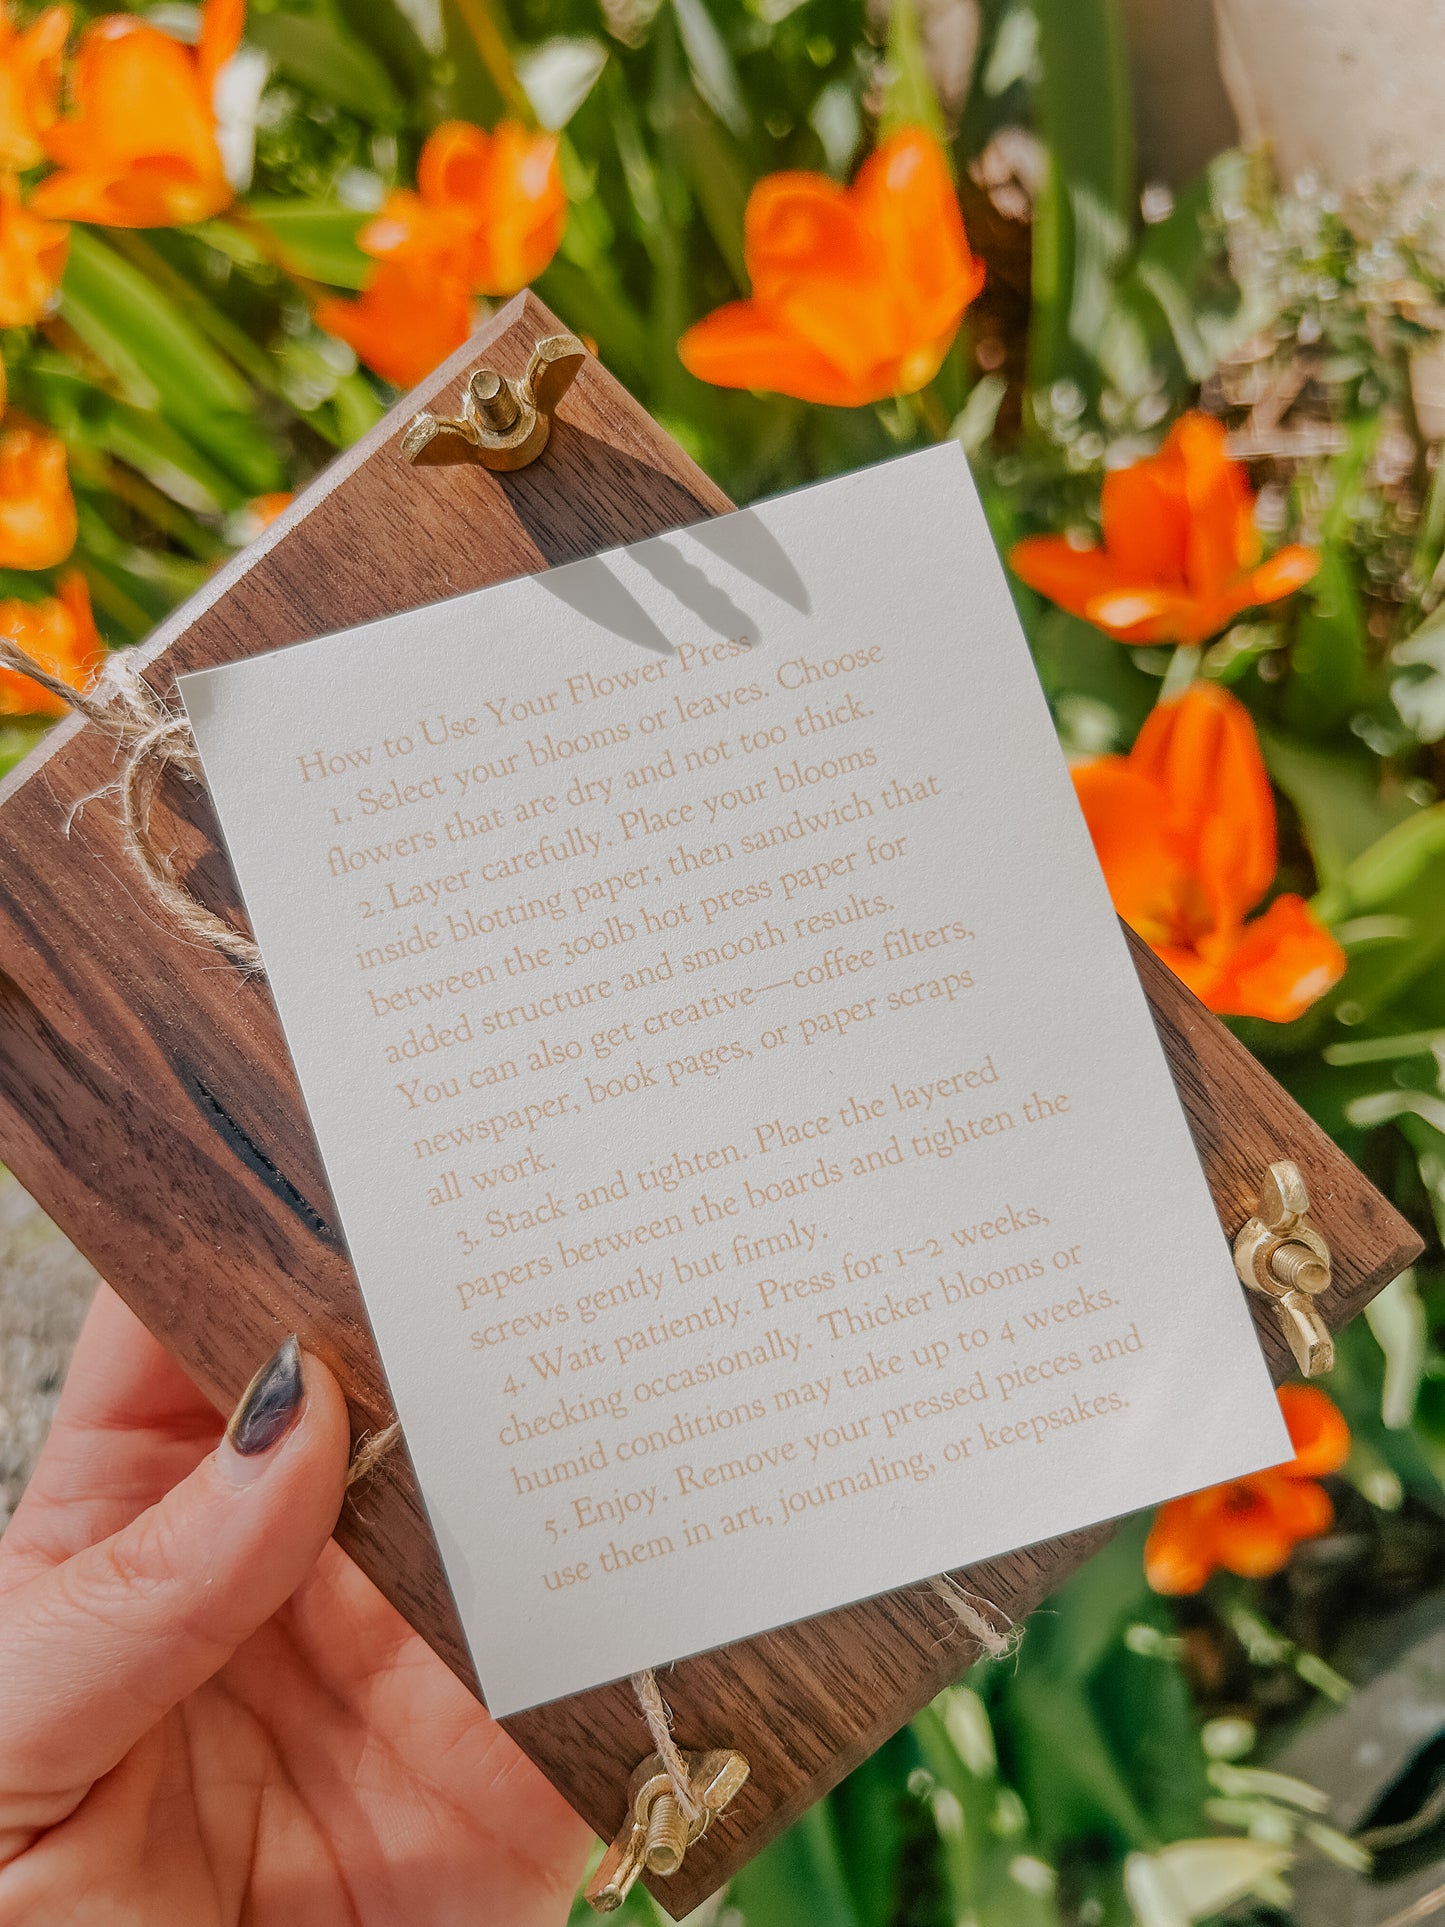 How to Use Your Flower Press
1. Select your blooms or leaves. Choose
flowers that are dry and not too thick.
2. Layer carefully. Place your blooms
inside blotting paper, then sandwich that
between the 300lb hot press paper for
added structure and smooth results.
You can also get creative—coffee filters,
newspaper, book pages, or paper scraps
all work.
3. Stack and tighten. Place the layered
papers between the boards and tighten the
screws gently but firmly.
4. Wait patiently. Press for 1–2 weeks,
checking occasionally. Thicker blooms or
humid conditions may take up to 4 weeks.
5. Enjoy. Remove your pressed pieces and
use them in art, journaling, or keepsakes.